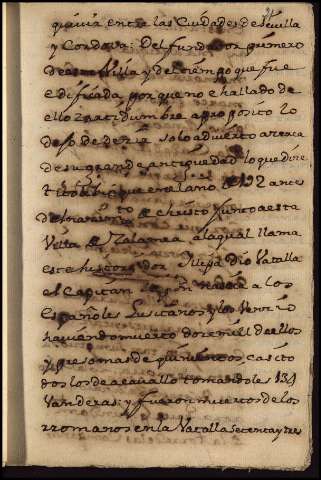 quivia entre las Ciudades de Sevilla
y Cordova: Del fundador primero
de esta Villa y del tiempo que fue
edificada porque no e hallado de
ello zertidumbre aproposito lo
dejo de dezir solo advierto azerca
de su grande antiguedad lo que dize
que en el ano de 192 antes
del nacimto de Christo junto a esta
Villa de Zalamea a la qual llama
este historiador Ilipa Dio Vatalla
el Capitan a los
Españoles Lusitanos y los Venzio
haviendo muerto doze mill de ellos
y preso mas de quinientos casi to
dos los de a cavallo tomandoles 134
Vanderas: y fueron muertos de los
rromanos en la Vatalla setenta y tres